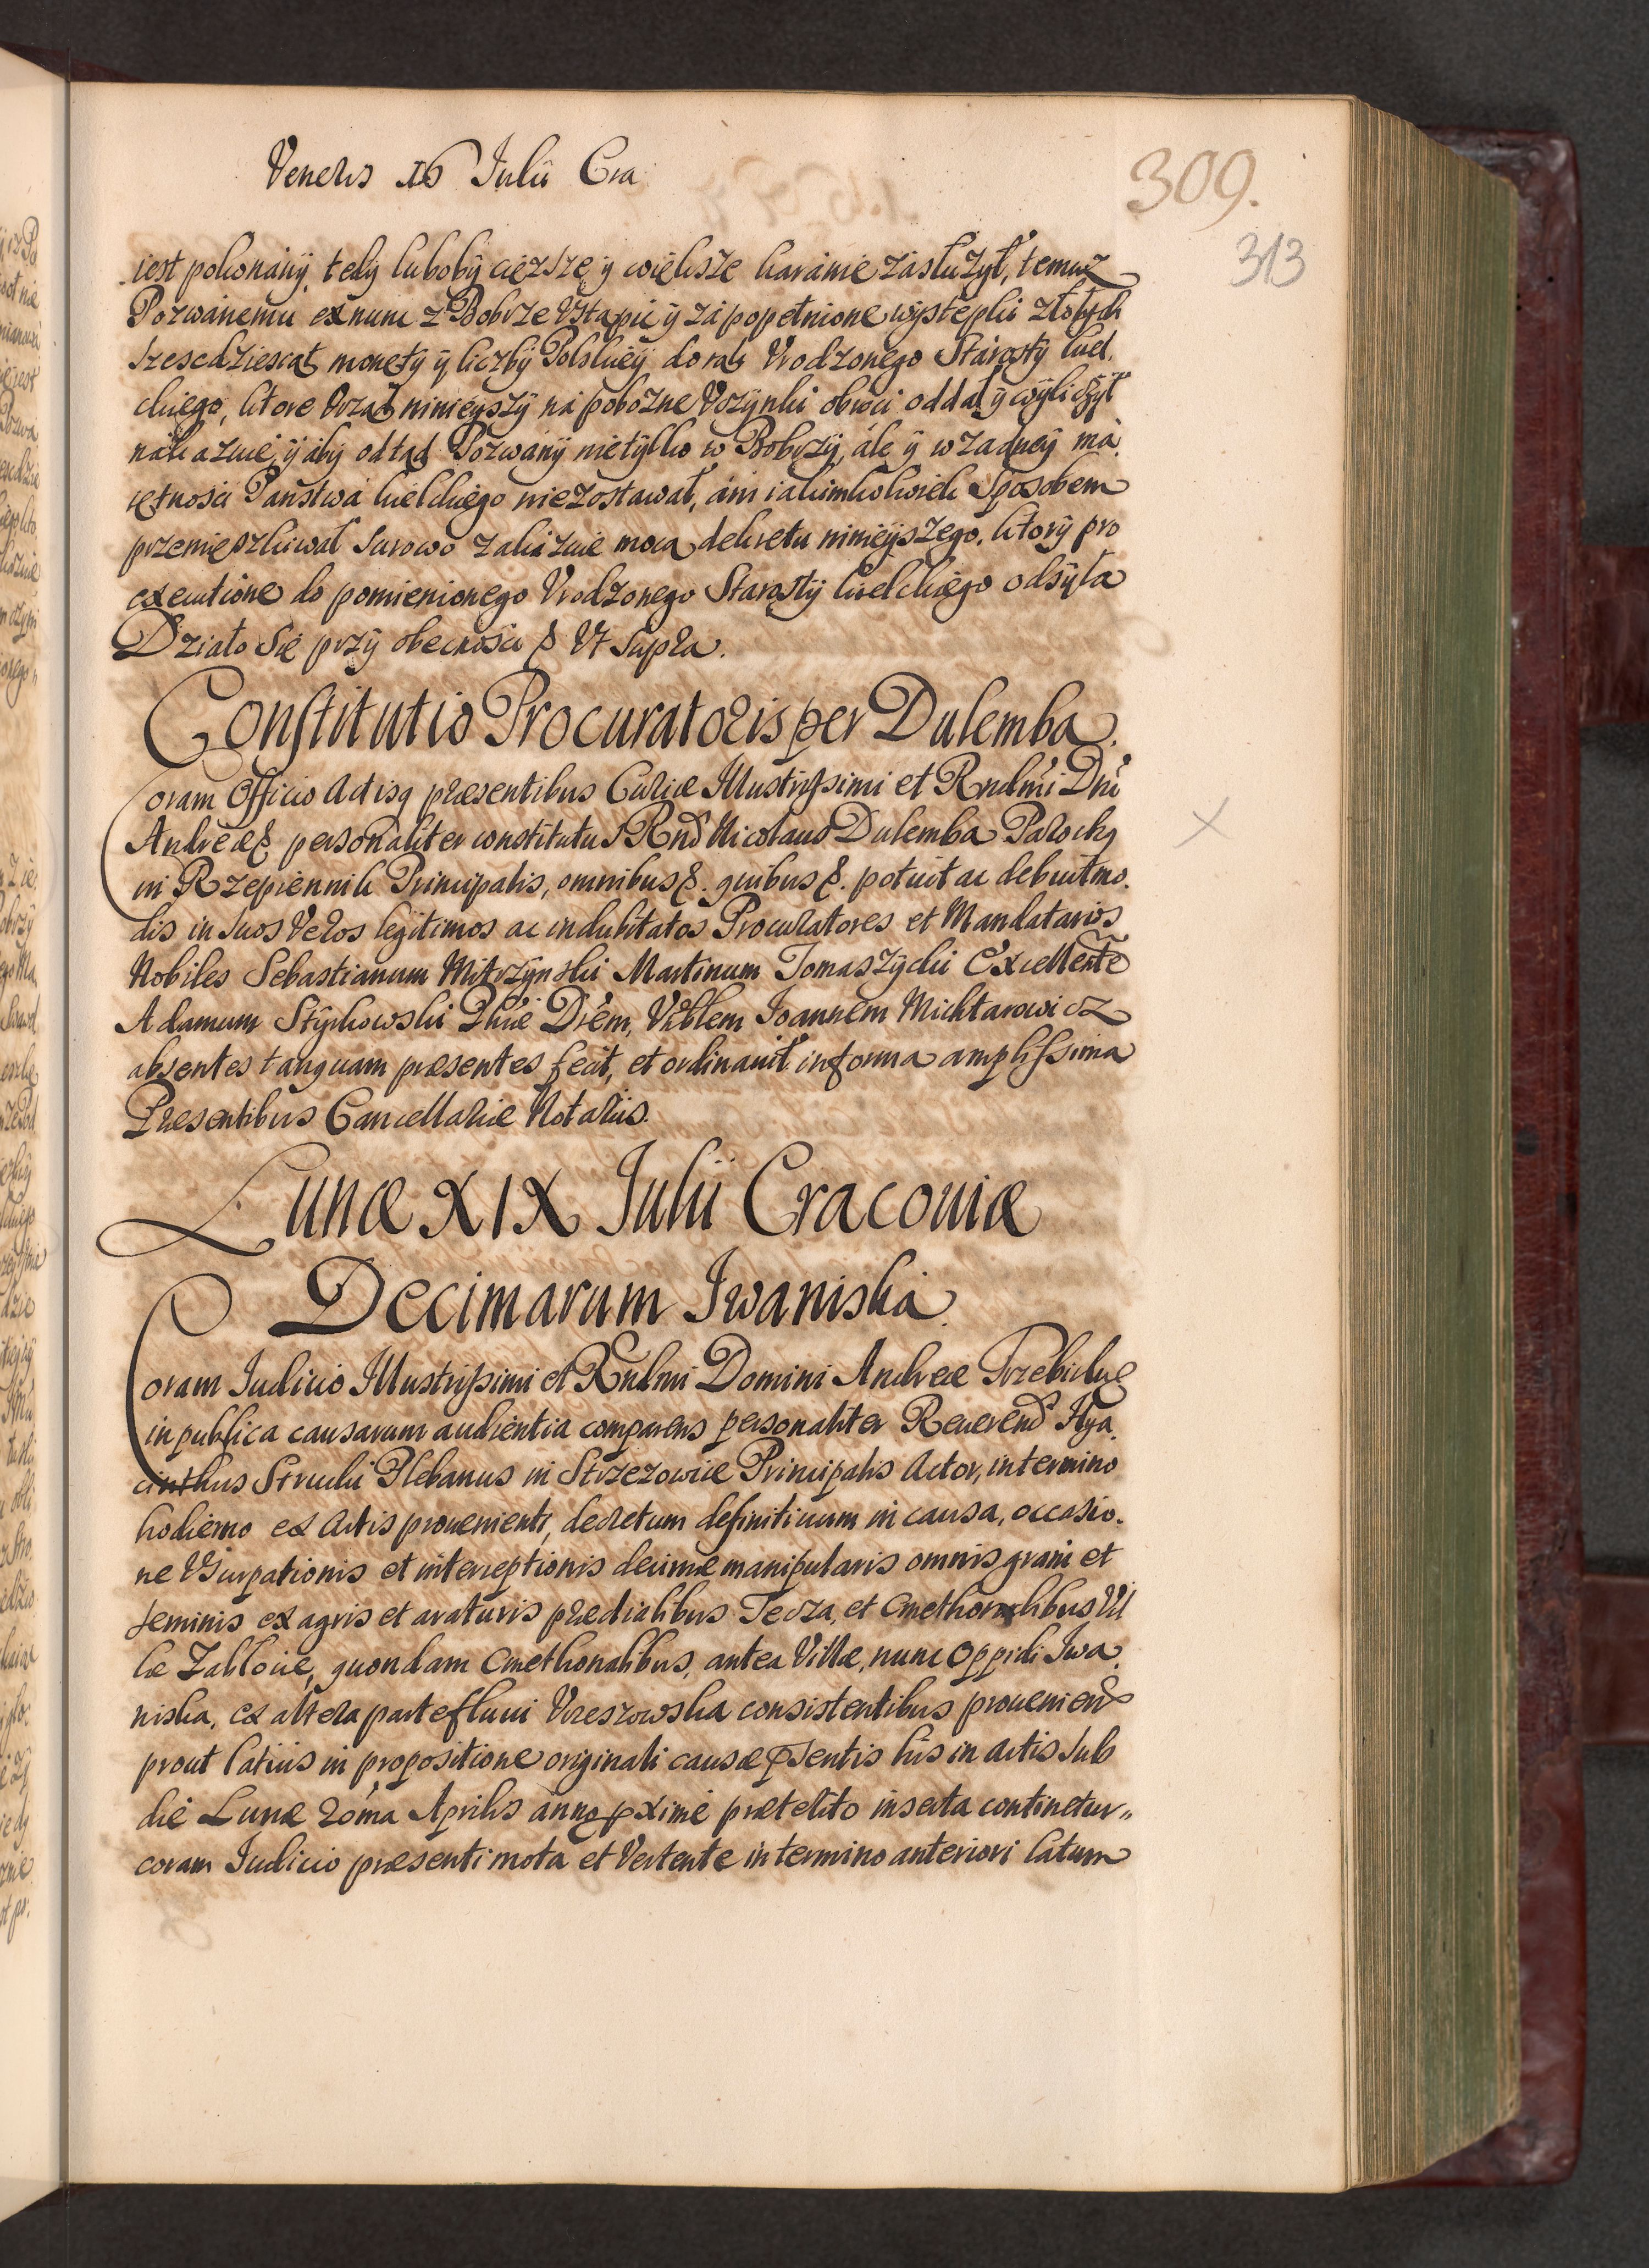 Veneris 16 Julii Cra
309.
313
iest pokonány, tedy luboby cięzsze y większe karánie zásłuzył, temuz
Pozwánemu exnunc z Bobrze Ustąpić y zá popełnione występki złotych
szescdziesiąt monety y liczby Polskiey, do rąk Urodzonego Stárosty kiel.
ckiego, ktore Urząd ninieyszy ná pobozne Uczynki obroci oddał y wyliczył
nákazuie, y áby odtąd Pozwány nietylko w Bobrzy, ále y wzadney má,
iętnosci Państwá kielckiego niezostawał, áni iakimkolwiek sposobem
przemieszkiwał surowo zakázuie mocą dekretu ninieyszego, ktory pro
executione do pomienionego Urodzonego Starosty kielckiego odsyła
Działo się przy obecnosci & Ut supra.
Constitutio Procuratoris per Dulemba.
Coram Officio Actisq præsentibus Curiæ Illustrissimi et Rndmi Dni
Andreæ & personaliter constitutus Rnd Nicolaus Dulemba Parochq
in Rzepiennik Principalis, omnibus &. quibus &. potuit ac debuit mo.
dis in suos Veros legitimos ac indubitatos Procuratores et Mandatarios
Nobiles Sebastianum Mitrzynski Martinum Tomaszycki Excellente
Adamum Stychowski Phiæ Drem, Vrblem Joannem Michtarowicz
absentes tanquam præsentes fecit, et ordinauit in forma amplissima
Præsentibus Cancellariæ Notariis.
Lunæ XIX Julii Cracouiæ
Decimarum Iwaniska.
Coram Iudicio Illustrissimi et Rndmi Domini Andreæ Trzebicky &
in publica causarum audientia comparens personaliter Reuerend Hya.
cinthus Struski Plebanus in Strzezowice Principalis Actor, in termino
hodierno ex Actis proueniente, decretum definitiuum in causa, occasio.
ne Usurpationis et interceptionis decimæ manipularis omnis grani et
seminis ex agris et araturis prædialibus Teoza, et Cmethonalibus Vil
læ Zabłocie, quondam Cmethonalibus, antea Villæ, nunc Oppidi Iwa.
niska, ex altera parte fluui Vreszowska consistentibus prouenien
prout latius in propositione originali causæ psentis his in Actis sub
die Lunæ 20ma Aprilis anno pxime præterito inserta continetur„
coram Iudicio præsenti mota et Vertente in termino anteriori latum